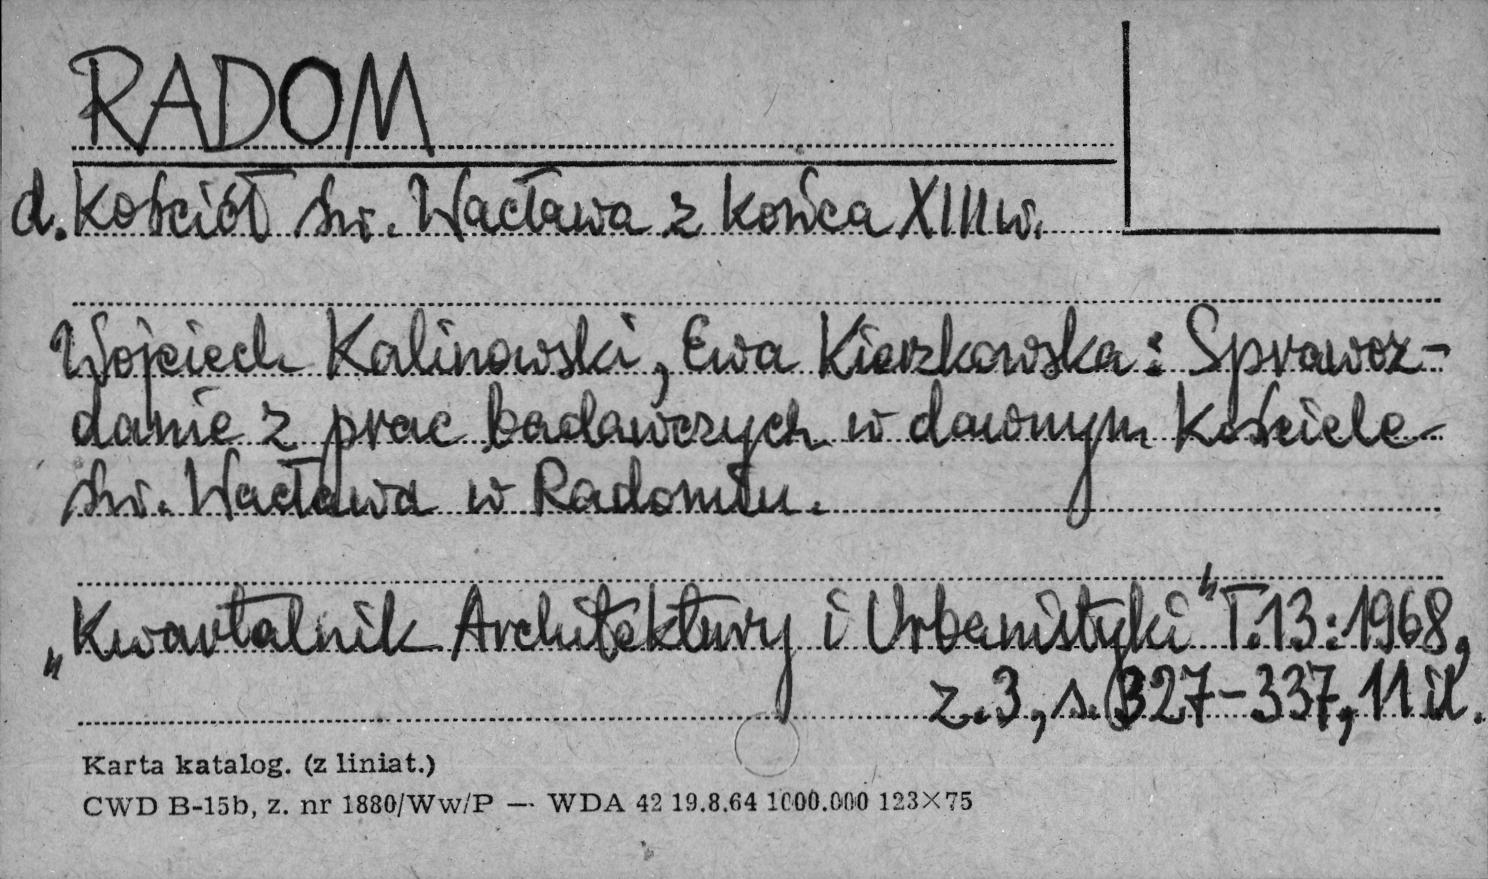 RADOM
d. Kościół św. Wacława z końca XIII w.
Wojciech Kalinowski, Ewa Kierzkowska: Sprawoz-
danie z prac badawczych w dawnym Kościele
św. Wacława w Radomiu.
„Kwartalnik Architektury i Urbanistyki" T.13:1968,
z.3, s. 327-337, 11 il.
Karta katalog. (z liniat.)
CWD B-15b, z. nr 1880/Ww/P — WDA 42 19.8.64 1000.000 123×75